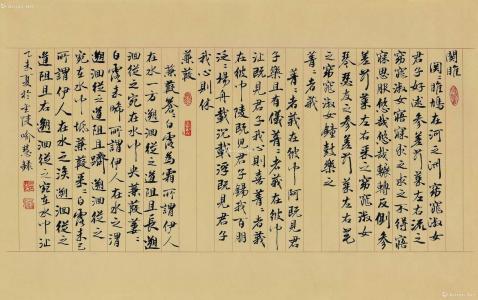 關雎
關〻雎鳩在河之洲窈窕淑女
君子好逑參差荇菜左右流之
窈窕淑女寤寐求之求之不得寤
寐思服悠哉悠哉輾轉反側參
差荇菜左右采之窈窕淑女
琴瑟友之參差荇菜左右芼
之窈窕淑女鐘鼓樂之
菁〻者莪
菁〻者莪在彼中阿既見君
子樂且有儀菁〻者莪在彼中
沚既見君子我心則喜菁〻者莪
在彼中陵既見君子錫我百朋
泛〻楊舟載沉載浮既見君子
我心則休
蒹葭
蒹葭蒼〻白露為霜所謂伊人
在水一方遡洄從之道阻且長遡
洄從之宛在水中央蒹葭萋〻
白露未晞所謂伊人在水之湄
遡洄從之道阻且躋遡洄從之
宛在水中坻蒹葭采〻白露未已
所謂伊人在水之涘遡洄從之
道阻且右遡洄從之宛在水中沚
乙未夏於金陵